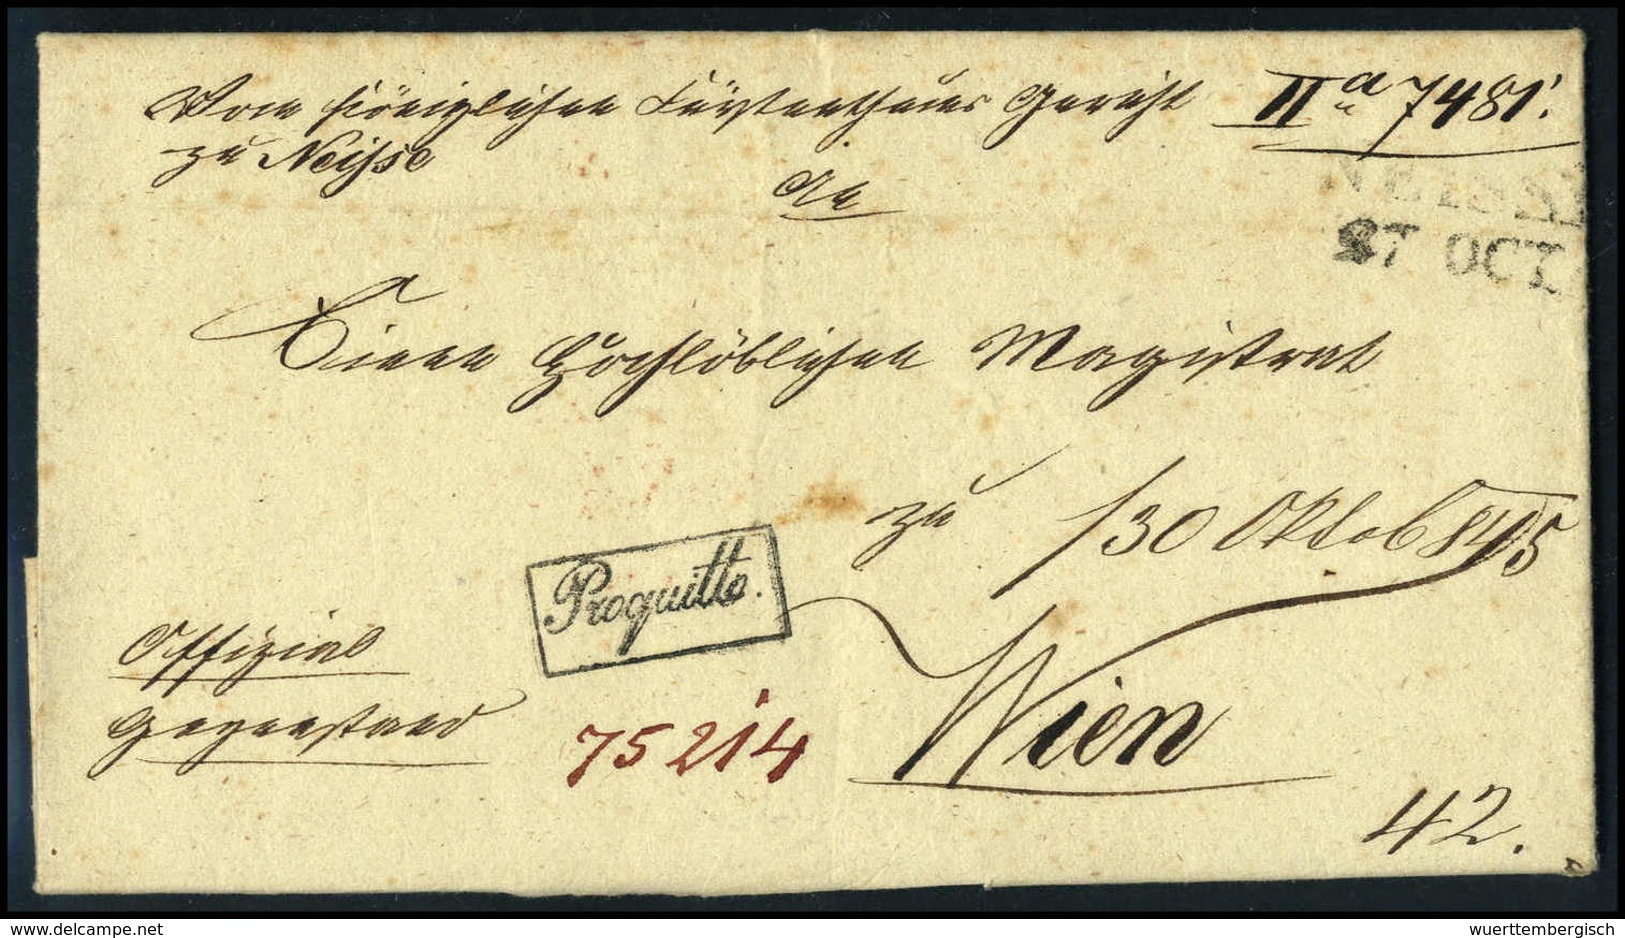 Vom Königlichen Fürstenthums Gericht IIa 7481.
zu Neisse
An
NEISSE
27 OCT.
Einen Hochlöblichen Magistrat
zu
/30 Oktob 845
Proquitto.
Offizial
Gegenstand
75214
Wien
42.
delcampe.net
wuerttembergisch